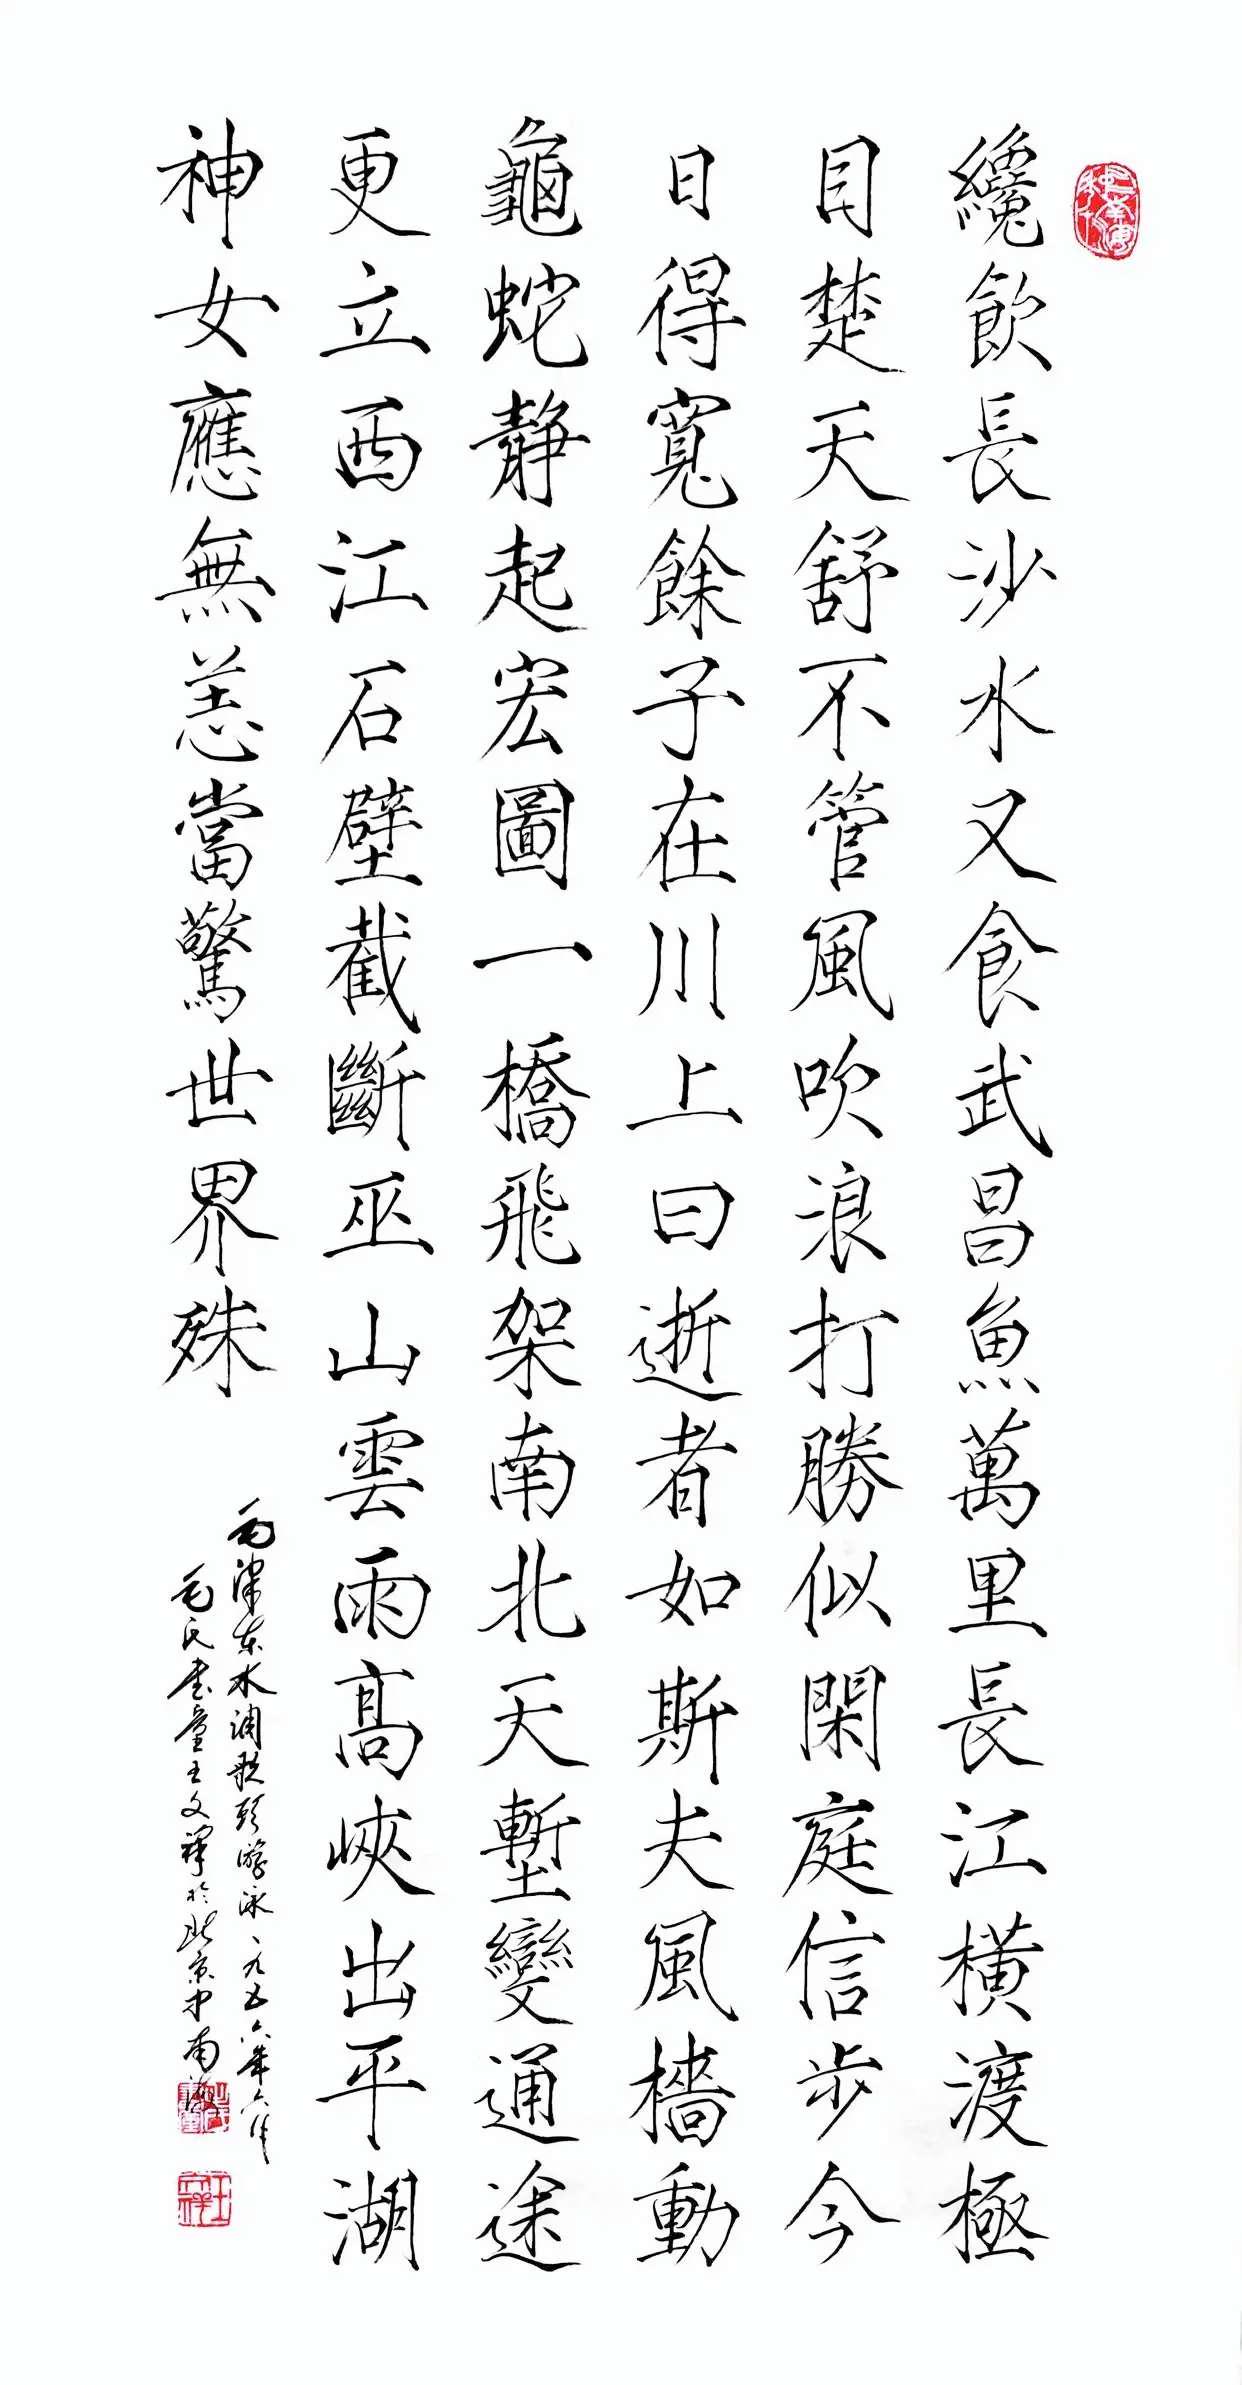 纔飲長沙水又食武昌魚萬里長江橫渡極
目楚天舒不管風吹浪打勝似閑庭信步今
日得寬餘子在川上曰逝者如斯夫風檣動
龜蛇靜起宏圖一橋飛架南北天塹變通途
更立西江石壁截斷巫山雲雨高峽出平湖
神女應無恙當驚世界殊
毛澤東水調歌頭游泳一九五六年六月
毛氏書童王文祥於北京中南海